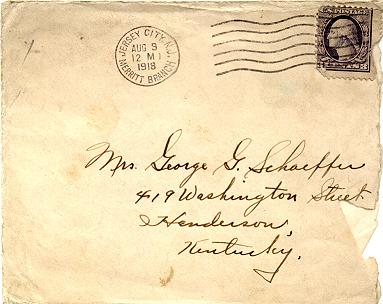 JERSEY CITY, N.J.
AUG 9
12 M
1918
MERRITT BRANCH
U.S. POSTAGE
Mrs. George G. Schaeffer
419 Washington Street
Henderson,
Kentucky.